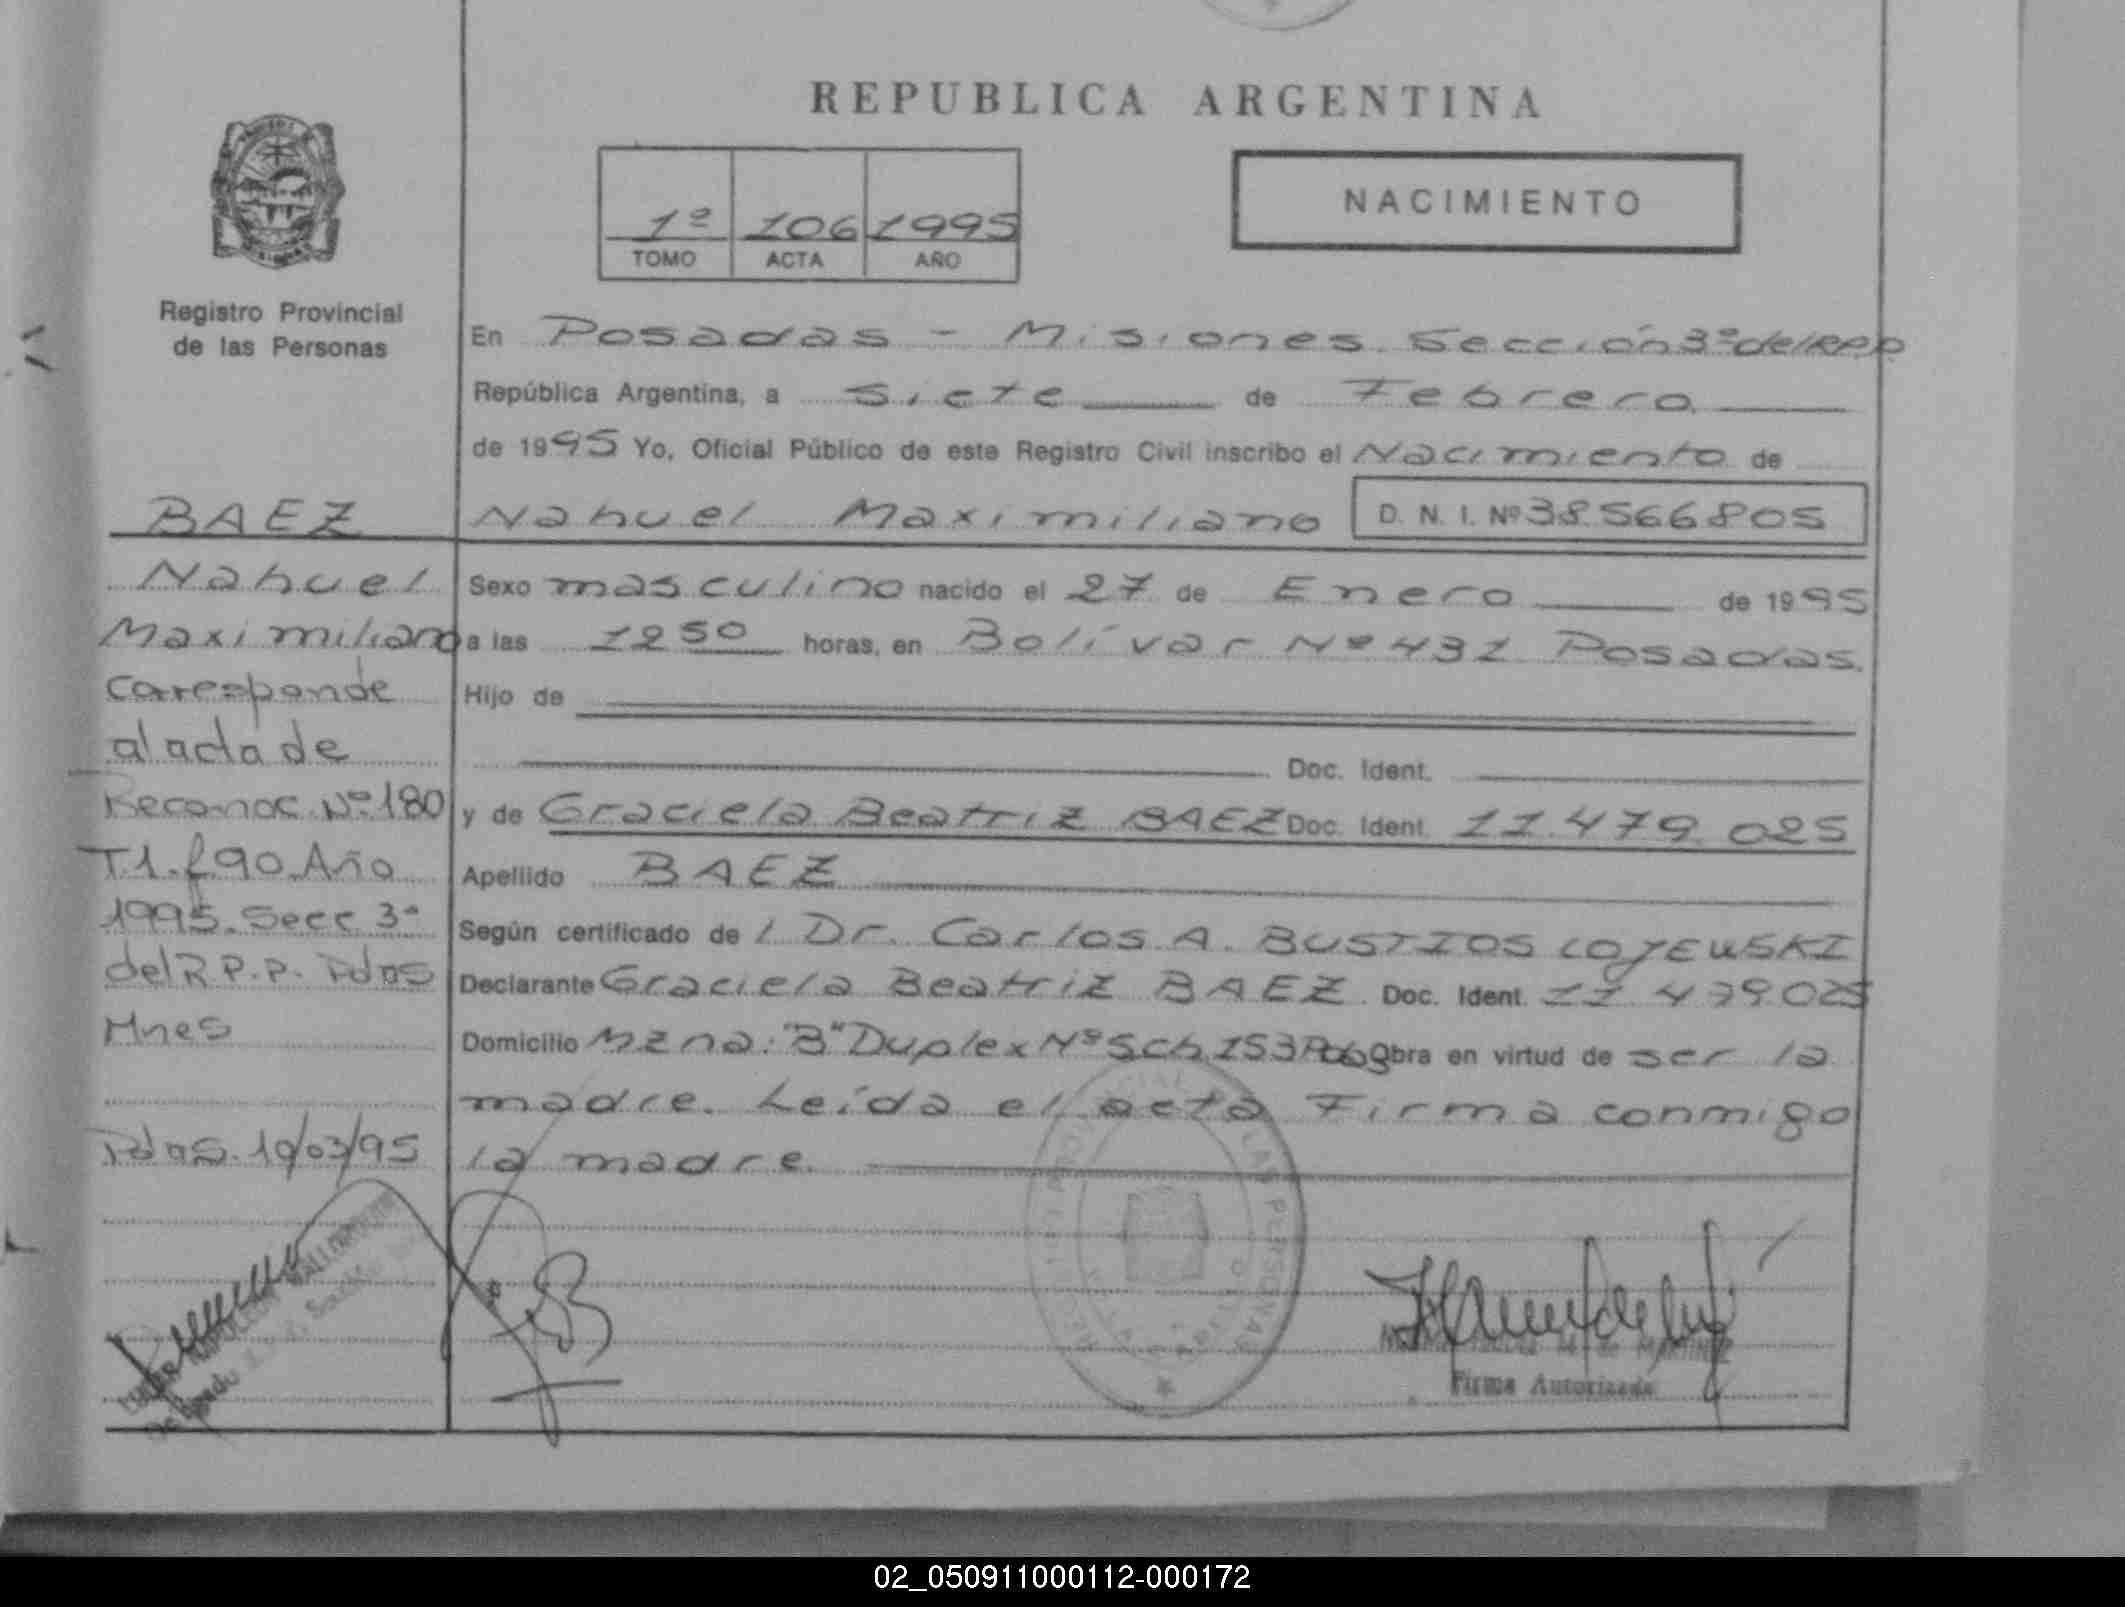 REPUBLICA ARGENTINA
1º 106 1995
TOMO ACTA AÑO
NACIMIENTO
Registro Provincial
de las Personas
En Posadas - Misiones. Sección 3ª del RPP
República Argentina, a siete de Febrero
de 1995 Yo, Oficial Público de este Registro Civil inscribo el Nacimiento de
Nahuel Maximiliano D. N. I. Nº 38566805
Sexo masculino nacido el 27 de Enero de 1995
a las 1250 horas, en Bolívar Nº 431 Posadas.
Hijo de
Doc. Ident.
y de Graciela Beatriz BAEZ Doc. Ident. 11.479.025
Apellido BAEZ
Según certificado de l Dr. Carlos A. BUSTIOS LOJEWSKI
Declarante Graciela Beatriz BAEZ. Doc. Ident. 11 479.025
Domicilio Mzna. "B" Duplex Nº 5 Ch 153 Obra en virtud de ser la
madre. Leída el acta Firma conmigo
la madre.
BAEZ
Nahuel
Maximiliano
Corresponde
al acta de
Reconoc. Nº 180
T.1. f 90. Año
1995. Secc 3ª
del R.P.P. Pdas
Mnes
Pdas. 10/03/95
REGISTRO PROVINCIAL DE LAS PERSONAS
Firma Autorizada
02_050911000112-000172